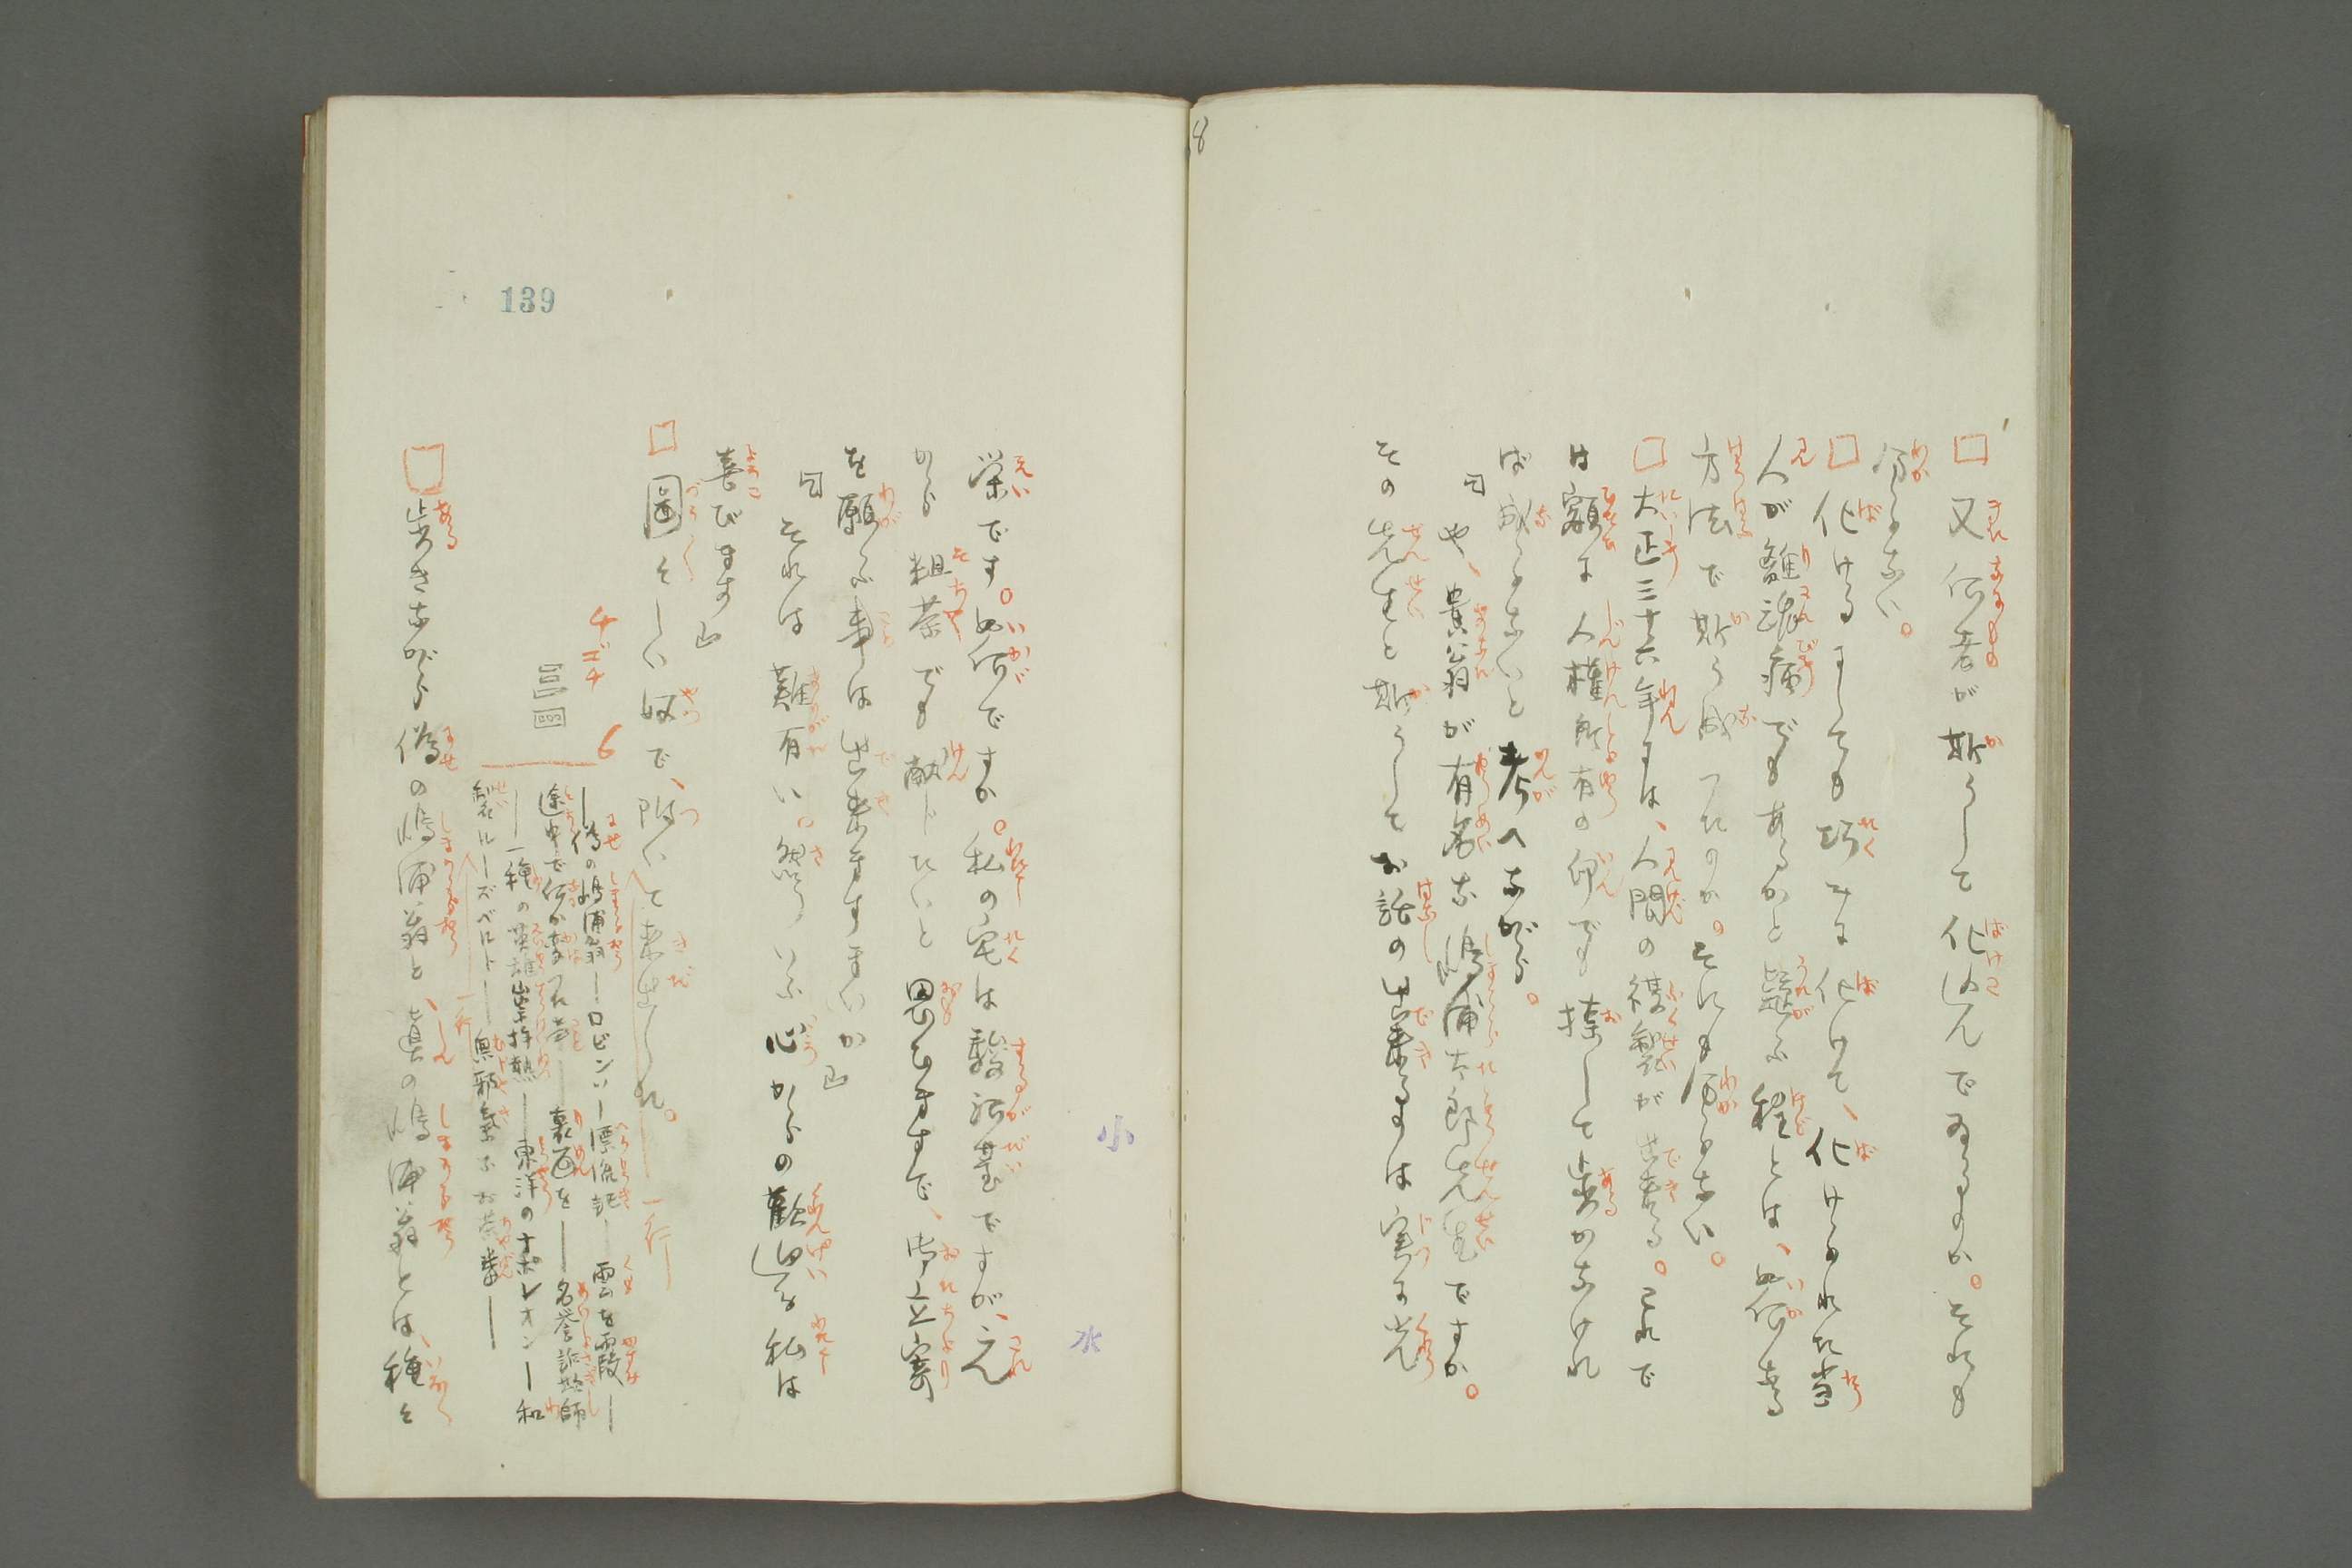 8
□又何者が斯うして化込んでゐるのか。それも
分らない。
□化けるにしても巧みに化けて、化けられた当
人が離魂病でもあるかと疑ふ程とは、如何なる
方法で斯う成つたのか。それも分らない。
□大正三十六年には、人間の複製が出来る。これで
は額に人権所有の印でも捺して歩かなけれ
ば成らないと考へながら。
「や、貴翁が有名な嶋浦太郎先生ですか。
その先生と斯うしてお話の出来るのは実に光
小
水
栄です。如何ですか。私の宅は駿河台ですが、之
から粗茶でも献じたいと思ひますで、御立寄
を願ふ事は出来ますまいか」
「それは難有い。然ういふ心からの歓迎を私は
喜びます」
□図々しい奴で、附いて来出した。
一行
139
4ゴチ
6
昌
―偽の嶋浦翁―ロビンソー漂流記―雲を霞―
途中で何か変つた事―裏面を―名誉詐欺師
―一種の英雄崇拝熱―東洋のナポレオン―和
製ルーズベルト―無邪気なお茶番―
一行
□歩きながら偽の嶋浦翁と、真の嶋浦翁とは、種々